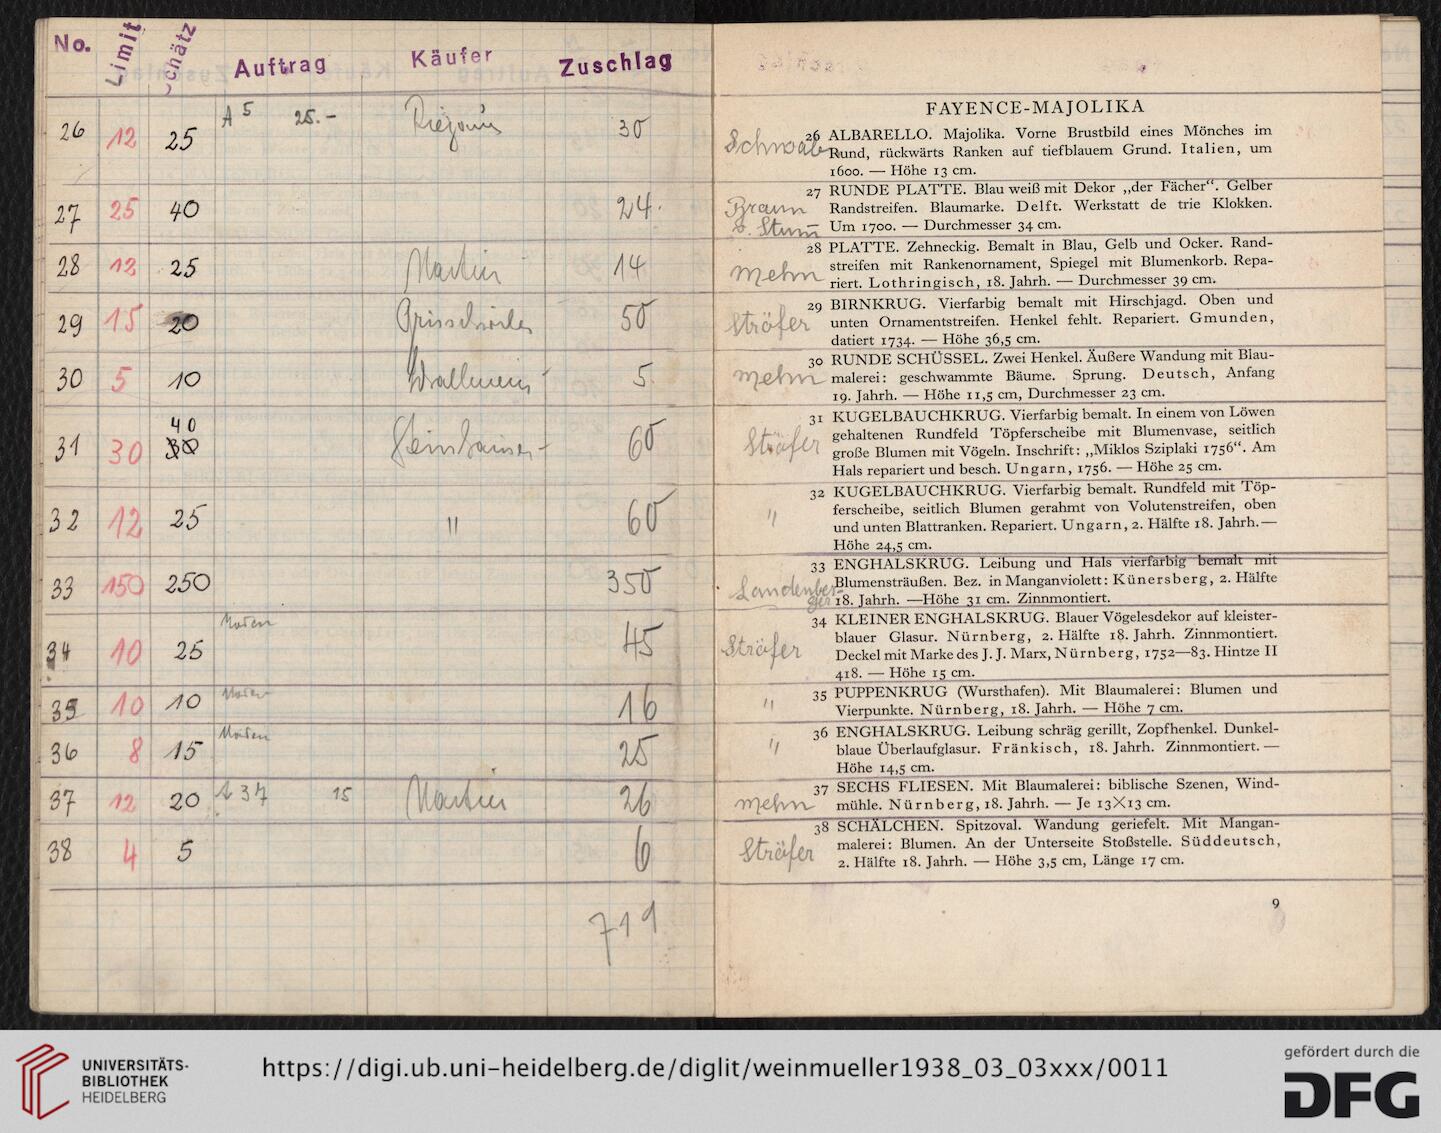 No. Limit Schätz Auftrag Käufer Zuschlag
26 12 25 A 5 25.- 30
27 25 40 24.
28 12 25 Martin 14
29 15 20 50
30 5 10 5.
31 30 40 30 60
32 12 25 " 60
33 150 250 350
34 10 25 45
35 10 10 16
36 8 15 25
37 12 20 A 37 15 Martin 26
38 4 5 6
719
FAYENCE-MAJOLIKA
Schwab 26 ALBARELLO. Majolika. Vorne Brustbild eines Mönches im
Rund, rückwärts Ranken auf tiefblauem Grund. Italien, um
1600. — Höhe 13 cm.
27 RUNDE PLATTE. Blau weiß mit Dekor „der Fächer“. Gelber
Braun Randstreifen. Blaumarke. Delft. Werkstatt de trie Klokken.
v. Stumm Um 1700. — Durchmesser 34 cm.
28 PLATTE. Zehneckig. Bemalt in Blau, Gelb und Ocker. Rand-
mehn streifen mit Rankenornament, Spiegel mit Blumenkorb. Repa-
riert. Lothringisch, 18. Jahrh. — Durchmesser 39 cm.
29 BIRNKRUG. Vierfarbig bemalt mit Hirschjagd. Oben und
Sträfer unten Ornamentstreifen. Henkel fehlt. Repariert. Gmunden,
datiert 1734. — Höhe 36,5 cm.
30 RUNDE SCHÜSSEL. Zwei Henkel. Äußere Wandung mit Blau-
mehn malerei: geschwammte Bäume. Sprung. Deutsch, Anfang
19. Jahrh. — Höhe 11,5 cm, Durchmesser 23 cm.
31 KUGELBAUCHKRUG. Vierfarbig bemalt. In einem von Löwen
Sträfer gehaltenen Rundfeld Töpferscheibe mit Blumenvase, seitlich
große Blumen mit Vögeln. Inschrift: „Miklos Sziplaki 1756“. Am
Hals repariert und besch. Ungarn, 1756. — Höhe 25 cm.
32 KUGELBAUCHKRUG. Vierfarbig bemalt. Rundfeld mit Töp-
" ferscheibe, seitlich Blumen gerahmt von Volutenstreifen, oben
und unten Blattranken. Repariert. Ungarn, 2. Hälfte 18. Jahrh.—
Höhe 24,5 cm.
33 ENGHALSKRUG. Leibung und Hals vierfarbig bemalt mit
Landenber- Blumensträußen. Bez. in Manganviolett: Künersberg, 2. Hälfte
ger 18. Jahrh. —Höhe 31 cm. Zinnmontiert.
34 KLEINER ENGHALSKRUG. Blauer Vögelesdekor auf kleister-
Sträfer blauer Glasur. Nürnberg, 2. Hälfte 18. Jahrh. Zinnmontiert.
Deckel mit Marke des J. J. Marx, Nürnberg, 1752—83. Hintze II
418. — Höhe 15 cm.
35 PUPPENKRUG (Wursthafen). Mit Blaumalerei: Blumen und
" Vierpunkte. Nürnberg, 18. Jahrh. — Höhe 7 cm.
36 ENGHALSKRUG. Leibung schräg gerillt, Zopfhenkel. Dunkel-
" blaue Überlaufglasur. Fränkisch, 18. Jahrh. Zinnmontiert. —
Höhe 14,5 cm.
37 SECHS FLIESEN. Mit Blaumalerei: biblische Szenen, Wind-
mehn mühle. Nürnberg, 18. Jahrh. — Je 13×13 cm.
38 SCHÄLCHEN. Spitzoval. Wandung geriefelt. Mit Mangan-
Sträfer malerei: Blumen. An der Unterseite Stoßstelle. Süddeutsch,
2. Hälfte 18. Jahrh. — Höhe 3,5 cm, Länge 17 cm.
9
UNIVERSITÄTS-
BIBLIOTHEK
HEIDELBERG
https://digi.ub.uni-heidelberg.de/diglit/weinmueller1938_03_03xxx/0011
gefördert durch die
DFG